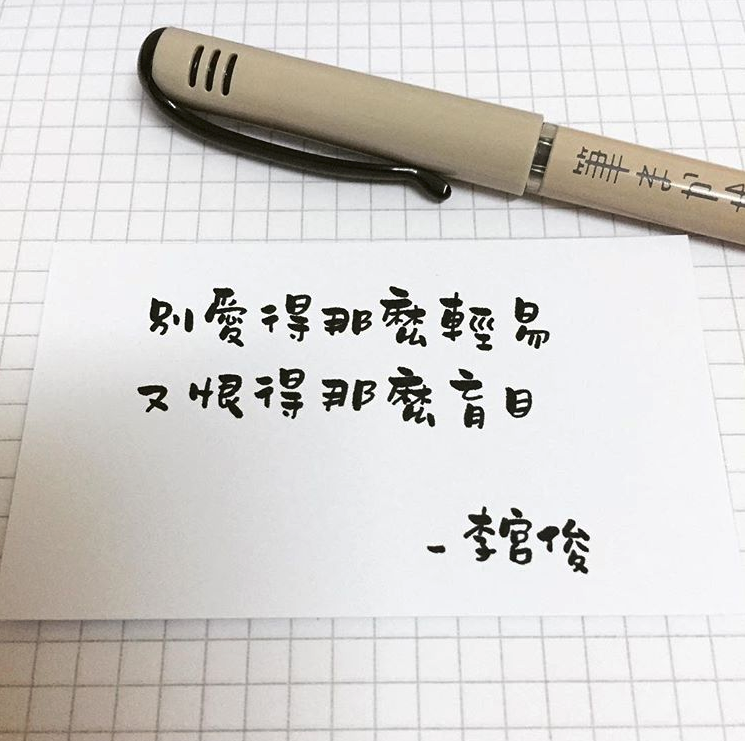 筆ごこ
別愛得那麼輕易
又恨得那麼盲目
-李宮俊